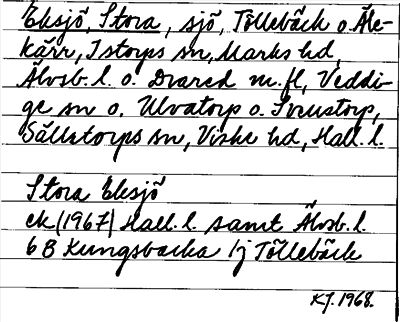 Eksjö, Stora, sjö, Töllebäck o. Åle-
kärr, Istorps sn, Marks hd,
Älvsb. l. o. Dvared m. fl, Veddi-
ge sn o. Ulvatorp o. Sviustorp,
Sällstorps sn, Viske hd, Hall. l.
Stora Eksjö
ek (1967) Hall. l. samt Älvsb. l.
6 B Kungsbacka 1j Töllebäck
KJ. 1968.